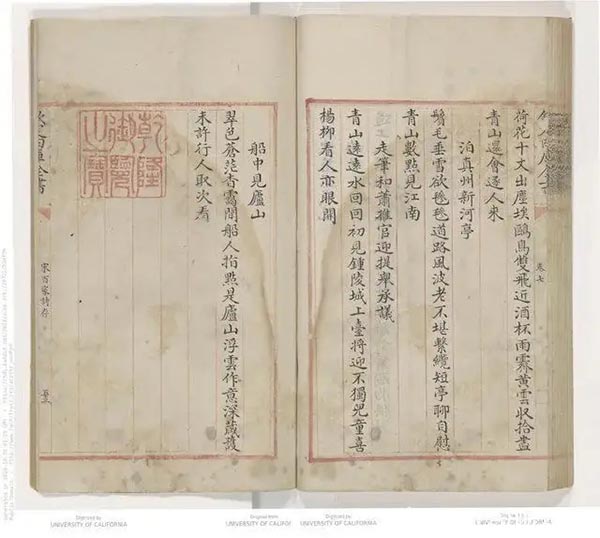 卷七
荷花十丈出塵埃鷗鳥雙飛近酒杯雨霽黃雲収拾盡
青山還會逐人來
泊真州新河亭
鬢毛垂雪欲毿毿道路風波老不堪繫纜短亭聊自慰
青山數點見江南
走筆和蕭推官迎提舉承議
青山遠遠水回回初見鍾陵城上臺將迎不獨兒童喜
楊柳看人亦眼開
船中見廬山
翠色蒼茫杳靄間船人指點是廬山浮雲作意深藏護
未許行人取次看
乾隆御覽之寶
宋百家詩存
Digitized by
UNIVERSITY OF CALIFORNIA
Original from
UNIVERSITY OF CALIFOR
Digitized by
UNIVERSITY OF CALIFORNIA